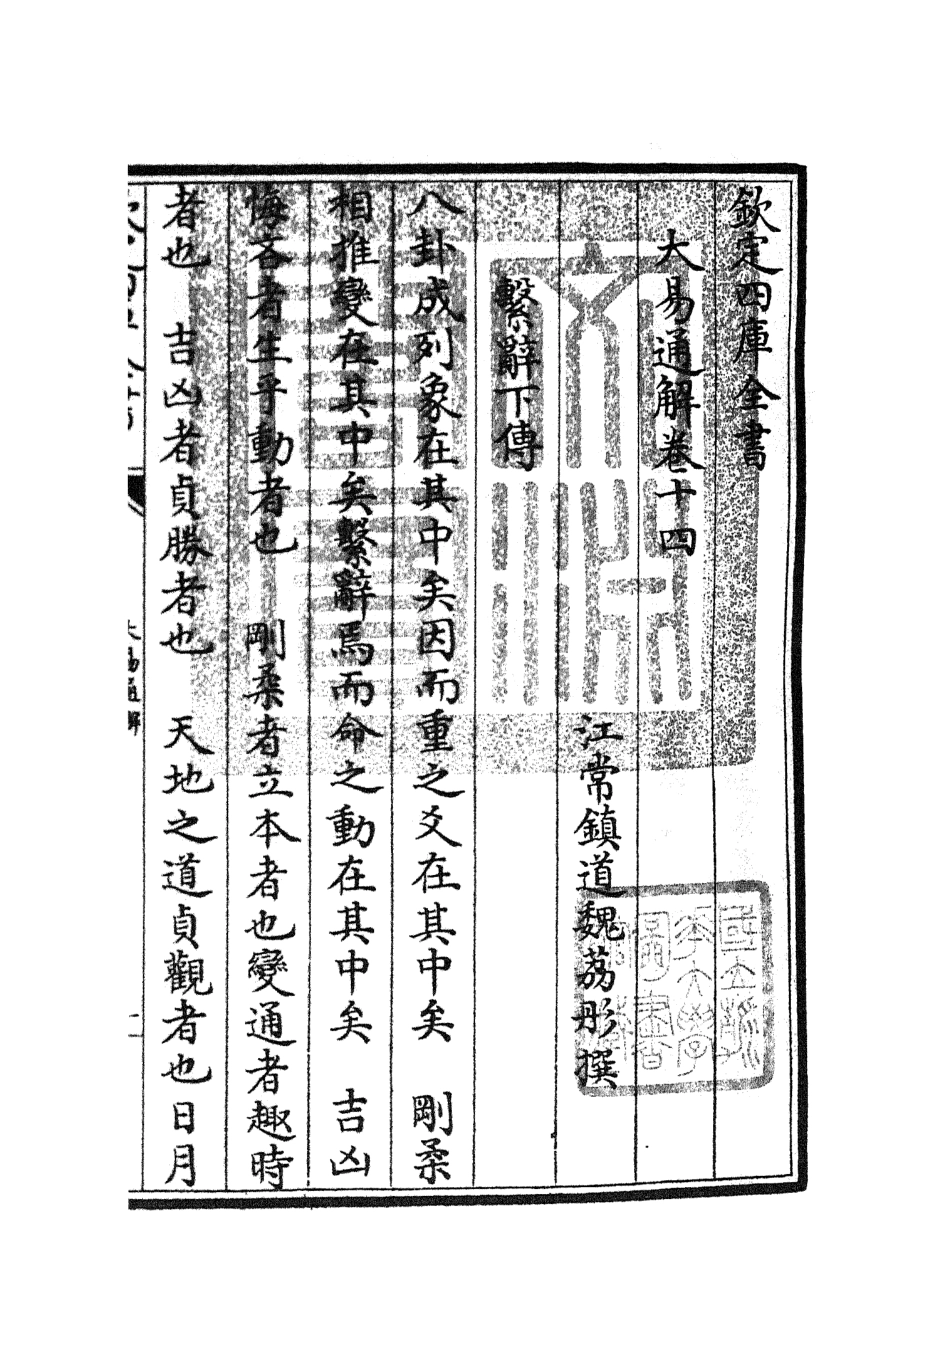 欽定四庫全書
大易通解卷十四
江常鎮道魏荔彤撰
繫辭下傳
八卦成列象在其中矣因而重之爻在其中矣　剛柔
相推變在其中矣繫辭焉而命之動在其中矣　吉凶
悔吝者生乎動者也　剛柔者立本者也變通者趣時
者也　吉凶者貞勝者也　天地之道貞觀者也日月
大易通解